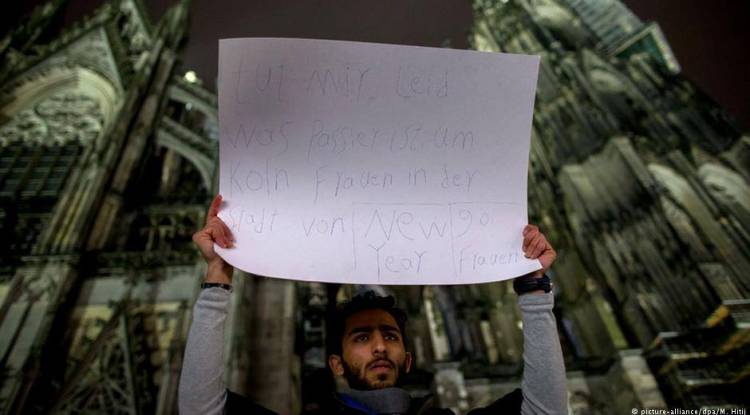 tut mir Leid
was Passiert ist um
Köln Frauen in der
Stadt von New 90
Year Frauen
picture-alliance/dpa/M. Hitij